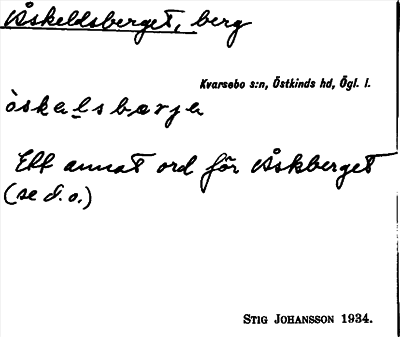 Åskeldsberget, berg
Kvarsebo s:n, Östkinds hd, Ögl. l.
òskəlsbærjə
Ett annat ord för Åskberget
(se d.o.)
STIG JOHANSSON 1934.